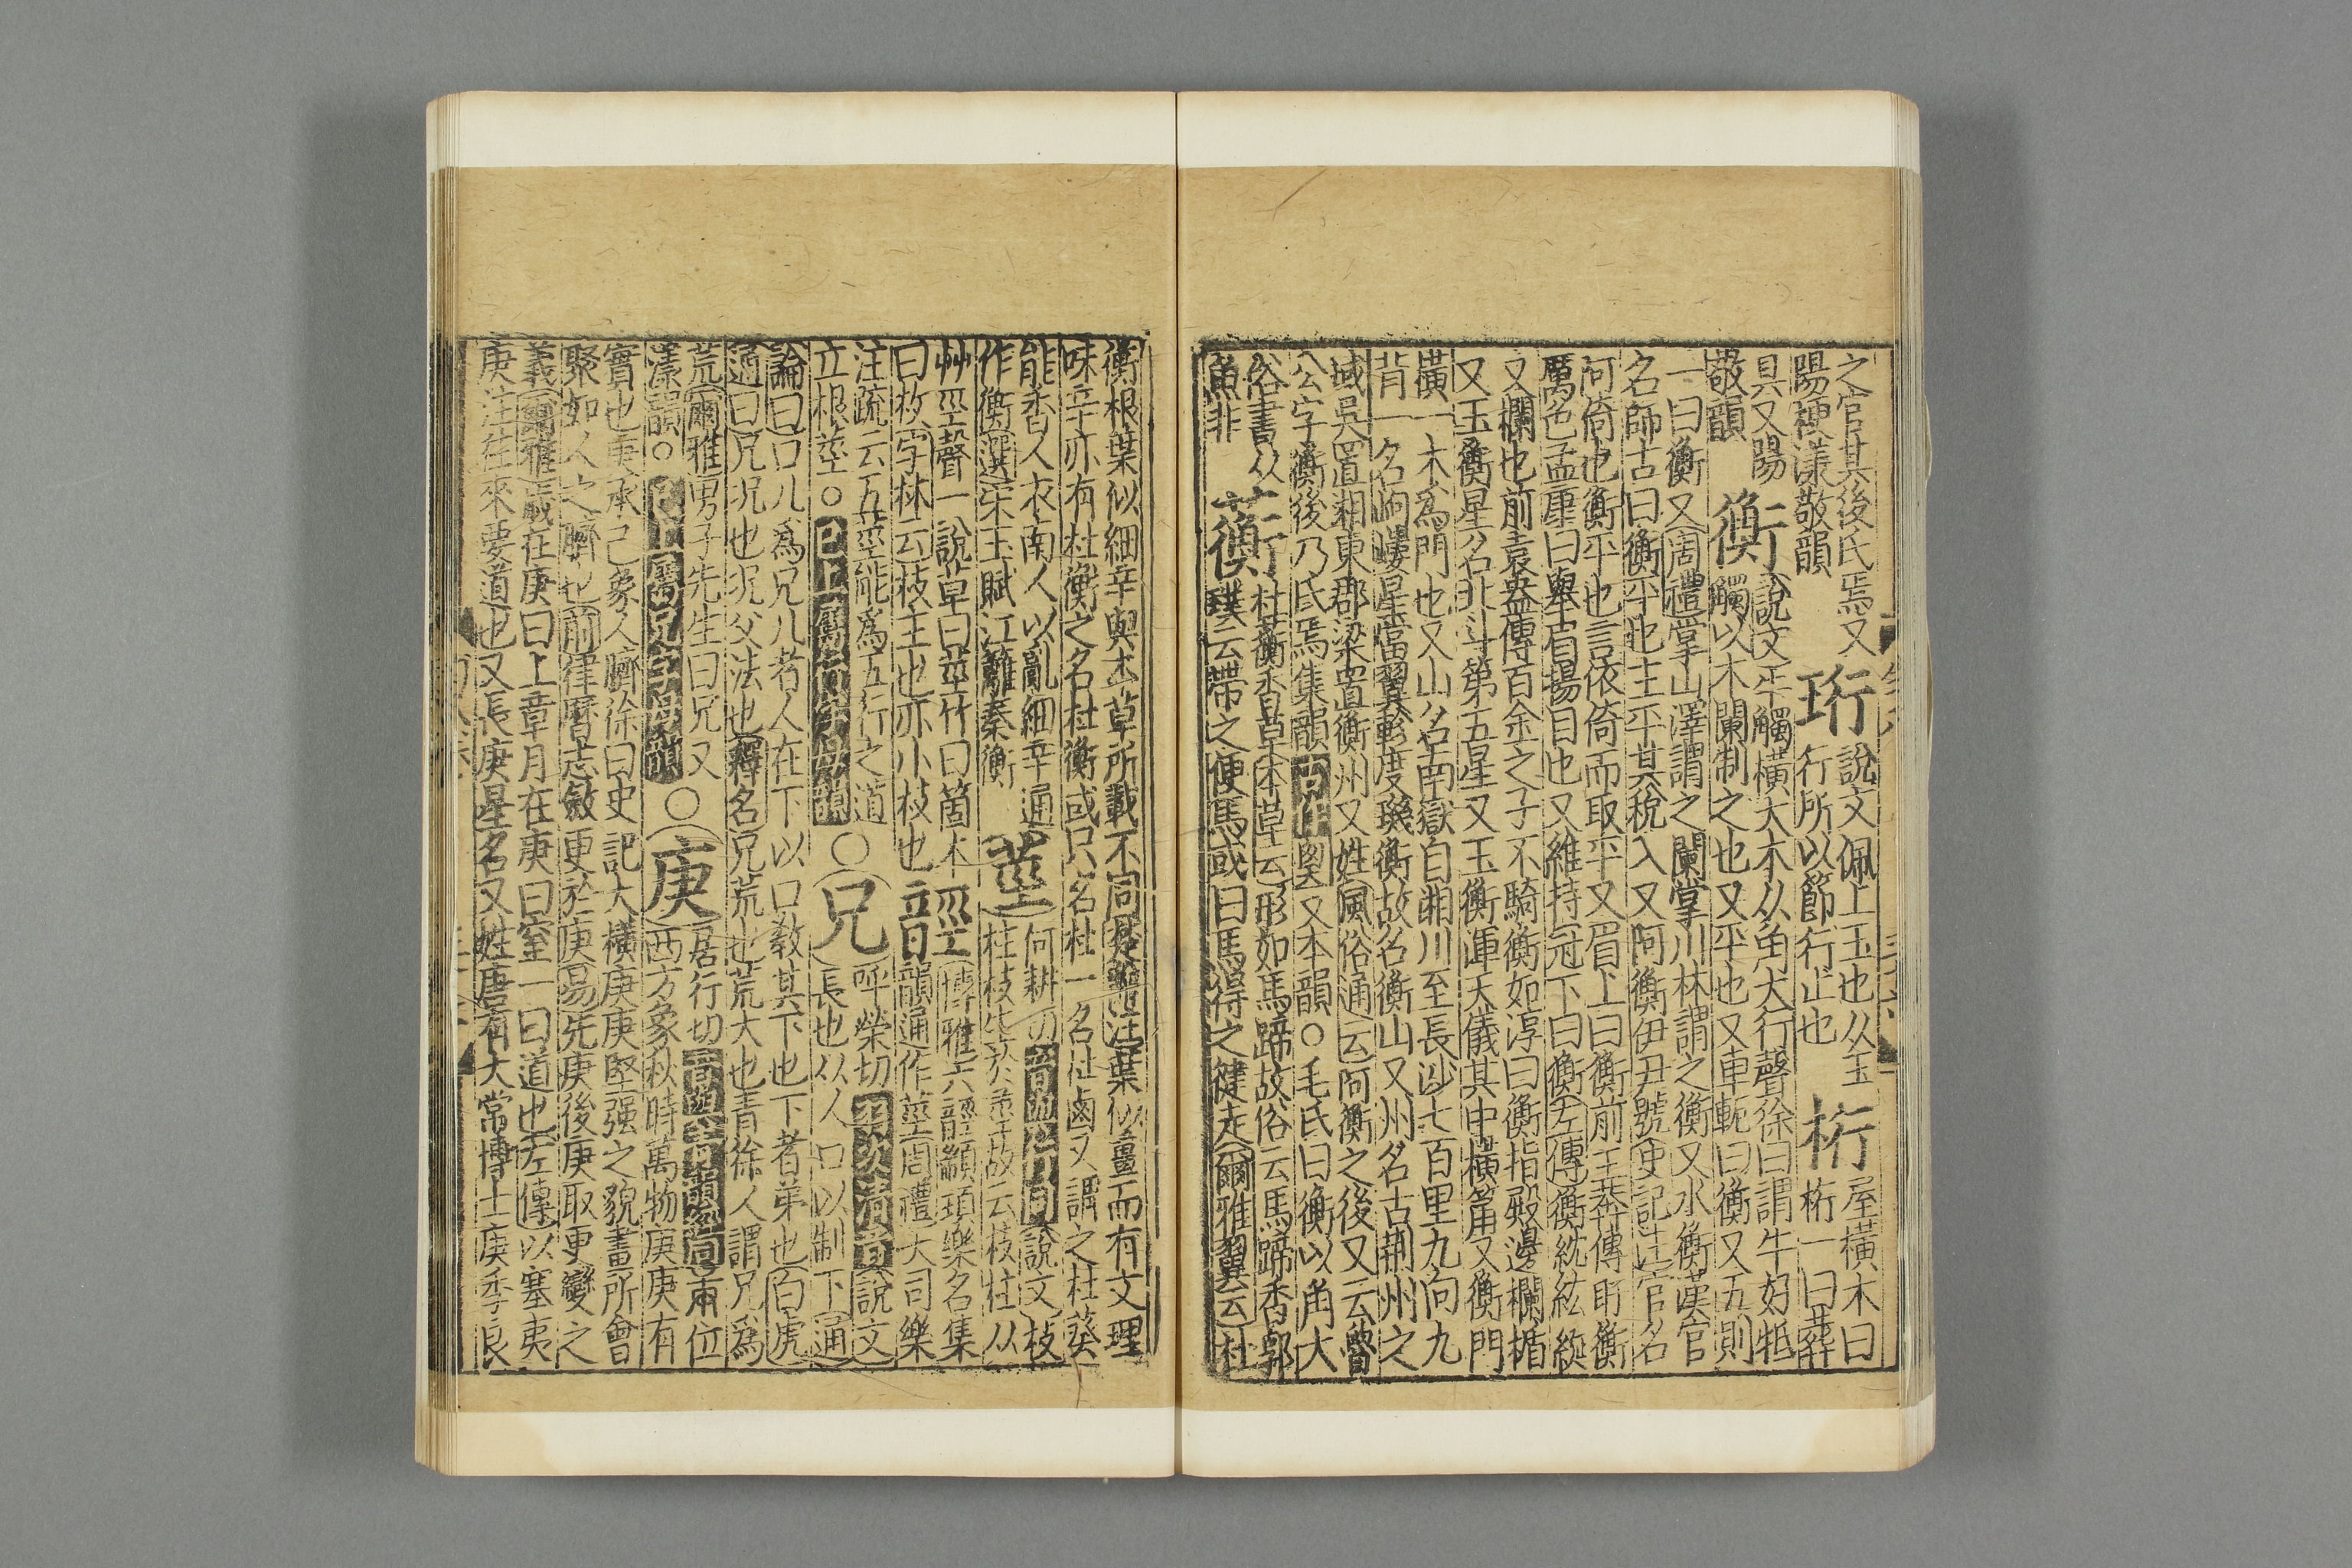 之官其後氏焉又
陽梗漾敬韻
珩
說文佩上玉也从玉
行所以節行止也
桁
屋橫木曰
桁一曰葬
具又陽
敬韻
衡
說文牛觸橫大木从角大行聲徐曰謂牛好牴
觸以木闌制之也又平也又車軛曰衡又五則
一曰衡又周禮掌山澤謂之闌掌川林謂之衡又水衡漢官
名師古曰衡平也主平其稅入又阿衡伊尹號史記注官名
阿倚也衡平也言依倚而取平又眉上曰衡前王莽傳盱衡
厲色孟康曰舉眉揚目也又維持冠下曰衡左傳衡紞紘綖
又欄也前袁盎傳百金之子不騎衡如淳曰衡指殿邊欄楯
又玉衡星名北斗第五星又玉衡渾天儀其中橫筩又衡門
橫一木為門也又山名南嶽自湘川至長沙七百里九向九
背一名岣嶁星當翼軫度璣衡故名衡山又州名古荊州之
域吳置湘東郡梁置衡州又姓風俗通云阿衡之後又云魯
公字衡後乃氏焉集韻古作奧又本韻○毛氏曰衡以角大
俗書从
魚非
蘅
杜蘅香草本草云形如馬蹄故俗云馬蹄香郭
璞云帶之便馬或曰馬得之健走爾雅翼云杜
衡根葉似細辛與本草所載不同楚辭注葉似薑而有文理
味辛亦有杜衡之名杜衡或只名杜一名杜鹵又謂之杜葵
能香人衣南人以亂細辛通
作衡選宋玉賦江蘺秦衡
莖
何耕切說文枝
柱枝生於莖故云枝柱从
艸巠聲一說草曰莖竹曰箇木
曰枚字林云枝主也亦小枝也
䪫
博雅六䪫顓頊樂名集
韻通作莖周禮大司樂
注疏云五莖能為五行之道
立根莖○
○兄
呼榮切說文
長也从人口以制下通
論曰口儿為兄儿者人在下以口教其下也下者弟也白虎
通曰兄況也況父法也釋名兄荒也荒大也青徐人謂兄為
荒爾雅男子先生曰兄又
漾韻○
○庚
居行切
西方象秋時萬物庚庚有
實也庚承己象人臍徐曰史記大橫庚庚堅强之貌畫所會
聚如人之臍也前律曆志斂更於庚易先庚後庚取更變之
義爾雅歲在庚曰上章月在庚曰窒一曰道也左傳以塞夷
庚注往來要道也又長庚星名又姓唐有大常博士庚季良